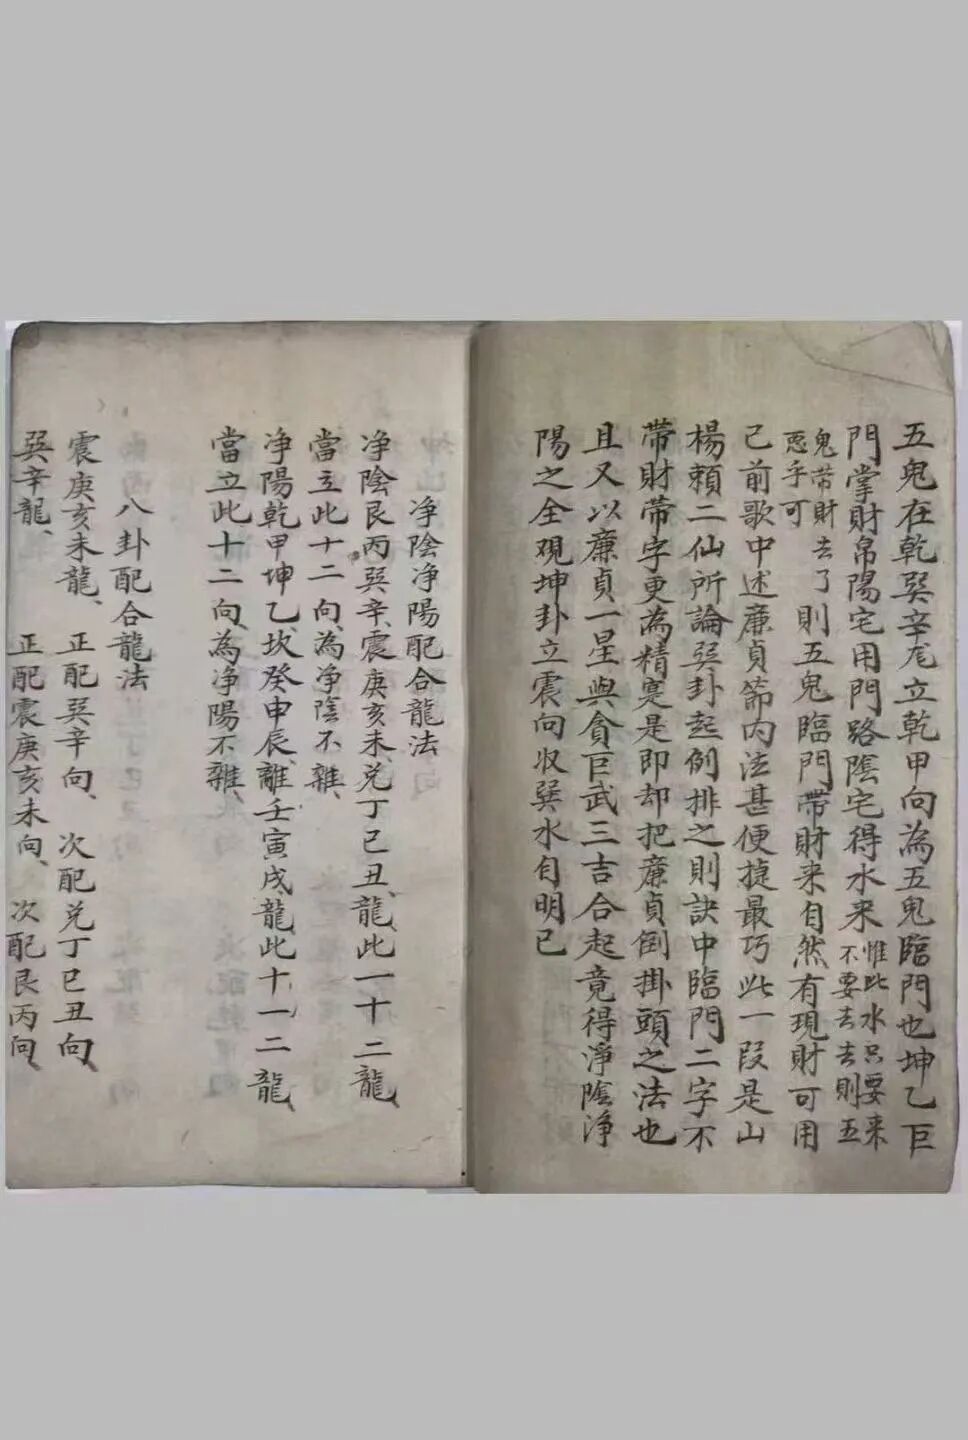 五鬼在乾巽辛龙立乾甲向為五鬼臨門也坤乙巨
門掌財帛陽宅用門路陰宅得水来惟此水只要来不要去去則五
鬼帶財去了惡乎可則五鬼臨門帶財来自然有現財可用
已前歌中述廉貞節内法甚便捷最巧此一段是山
楊賴二仙所論巽卦起例排之則訣中臨門二字不
帶財帶字更為精寔是即却把廉貞倒掛頭之法也
且又以廉貞一星與貪巨武三吉合起竟得淨陰淨
陽之全觀坤卦立震向收巽水自明已
净陰净陽配合龍法
净陰艮丙巽辛、震庚亥未、兑丁巳丑、龍此一十二龍、
當立此十二向、為净陰不雜、
净陽乾甲坤乙、坎癸申辰、離壬寅戌龍此十一二龍、
當立此十二向、為净陽不雜、
八卦配合龍法
震庚亥未龍、 正配巽辛向、 次配兑丁巳丑向、
巽辛龍、 正配震庚亥未向、次配艮丙向、